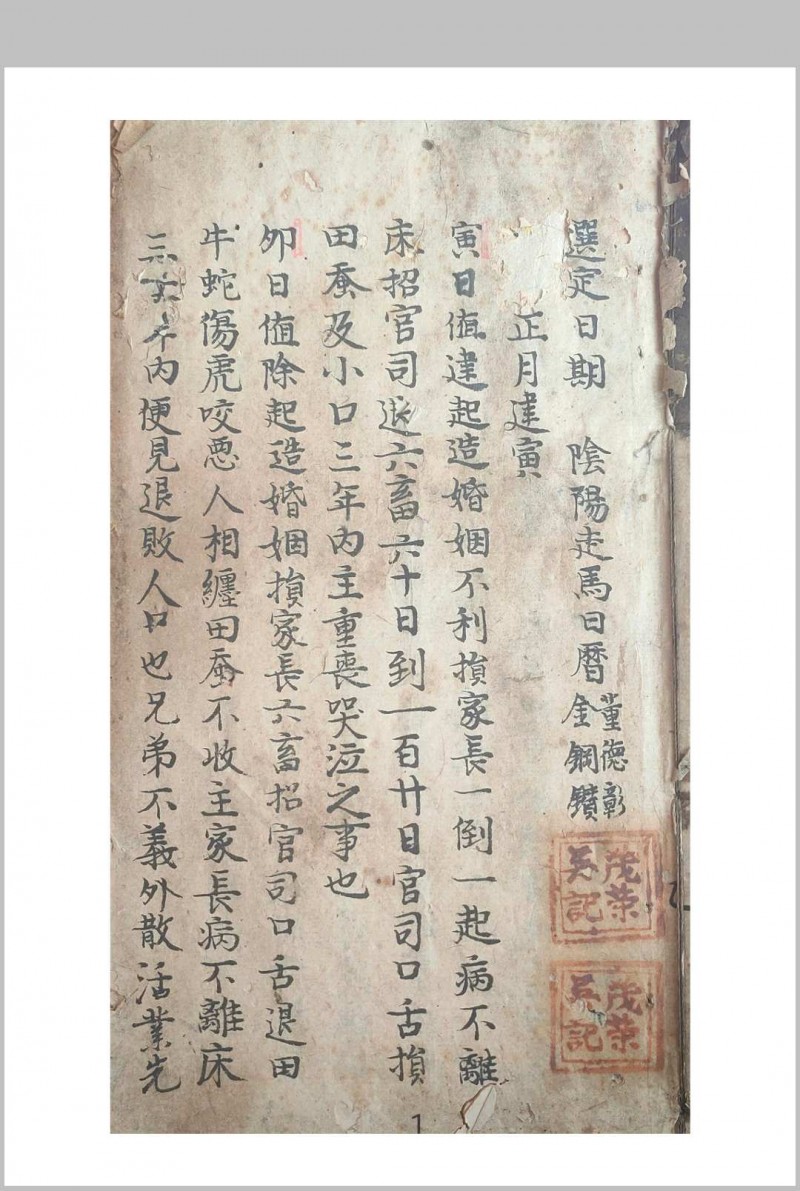 選定日期 陰陽走馬日曆 董德彰 金鎖鑽
正月建寅
寅日值建起造婚姻不利損家長一倒一起病不離
床招官司退六畜六十日到一百廿日官司口舌損
田蚕及小口三年內主重喪哭泣之事也
卯日值除起造婚姻損家長六畜招官司口舌退田
牛蛇傷虎咬惡人相纏田蚕不收主家長病不離床
三六年內便見退敗人口也兄弟不義外散活業先
茂榮
吳記
茂榮
吳記
1